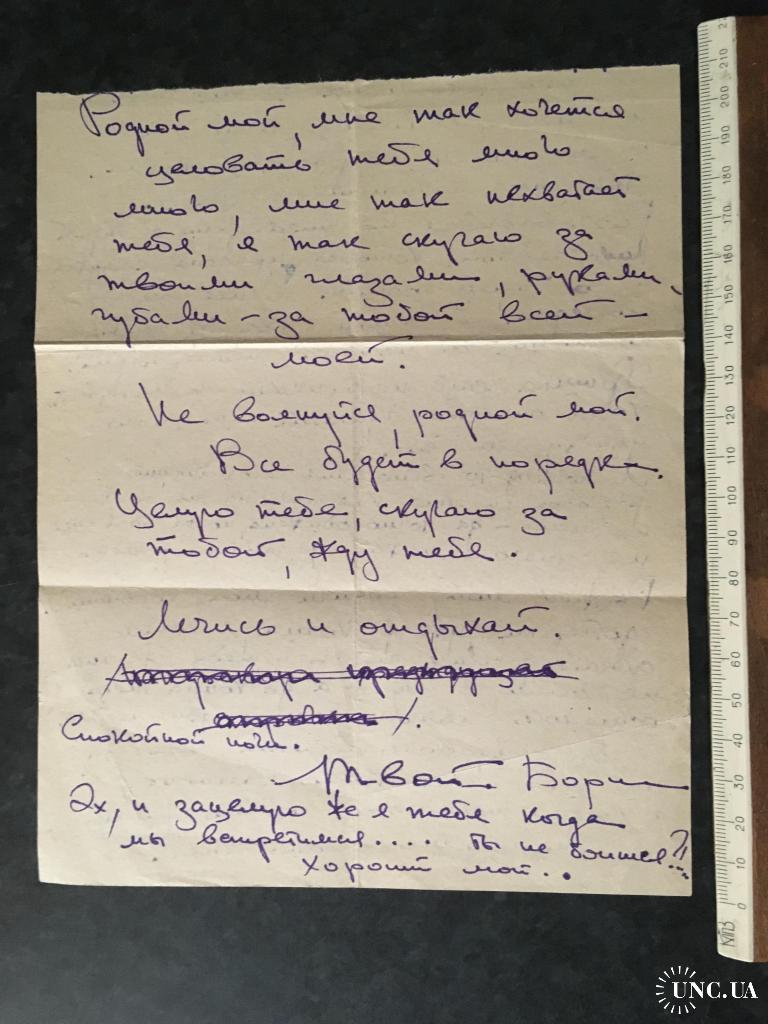 Родной мой, мне так хочется
целовать тебя много
много, мне так нехватает
тебя, я так скучаю за
твоими глазами, руками,
губами – за тобой всей –
моей.
Не волнуйся, родной мой.
Все будет в порядке.
Целую тебя, скучаю за
тобой, жду тебя.
Лечись и отдыхай.
Спокойной ночи.
Твой Борис
Эх, и зацелую же я тебя когда
мы встретимся.... Ты не боишься?!...
Хороший мой..
0 10 20 30 40 50 60 70 80 90 100 110 120 130 140 150 160 170 180 190 200 210
UNC.UA